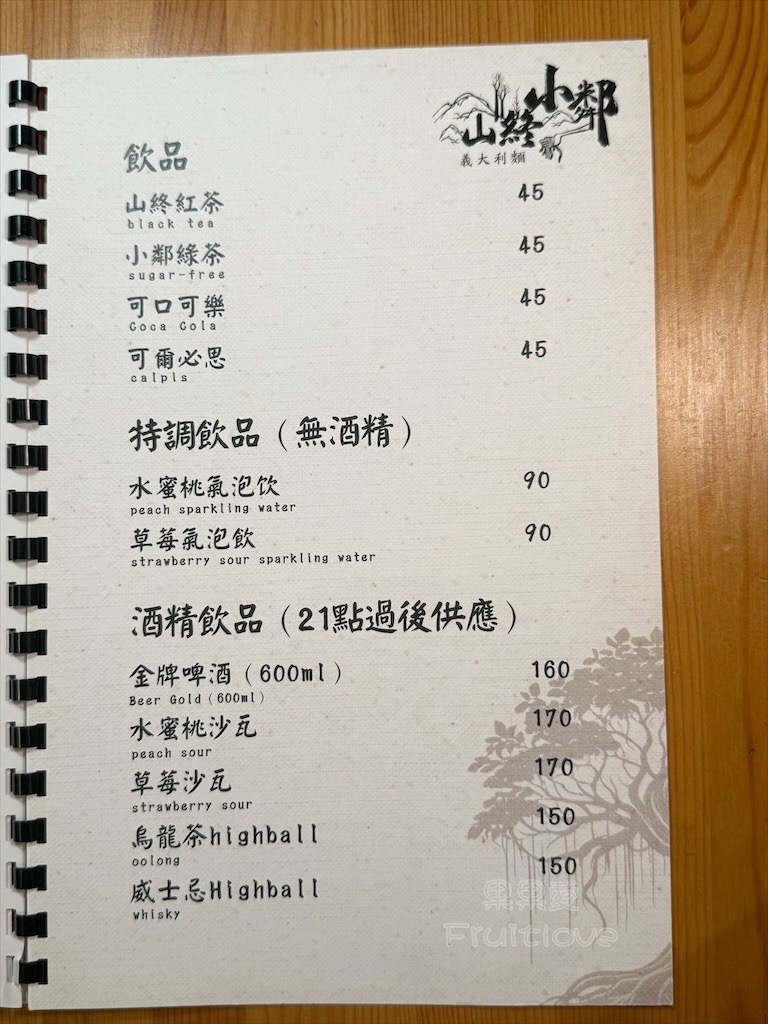 山終小鄰
義大利麵
飲品
山終紅茶 45
black tea
小鄰綠茶 45
sugar-free
可口可樂 45
Coca Cola
可爾必思 45
calpis
特調飲品（無酒精）
水蜜桃氣泡饮 90
peach sparkling water
草莓氣泡飲 90
strawberry sour sparkling water
酒精飲品（21點過後供應）
金牌啤酒（600ml） 160
Beer Gold（600ml）
水蜜桃沙瓦 170
peach sour
草莓沙瓦 170
strawberry sour
烏龍茶highball 150
oolong
威士忌Highball 150
whisky
果果愛
Fruitlove